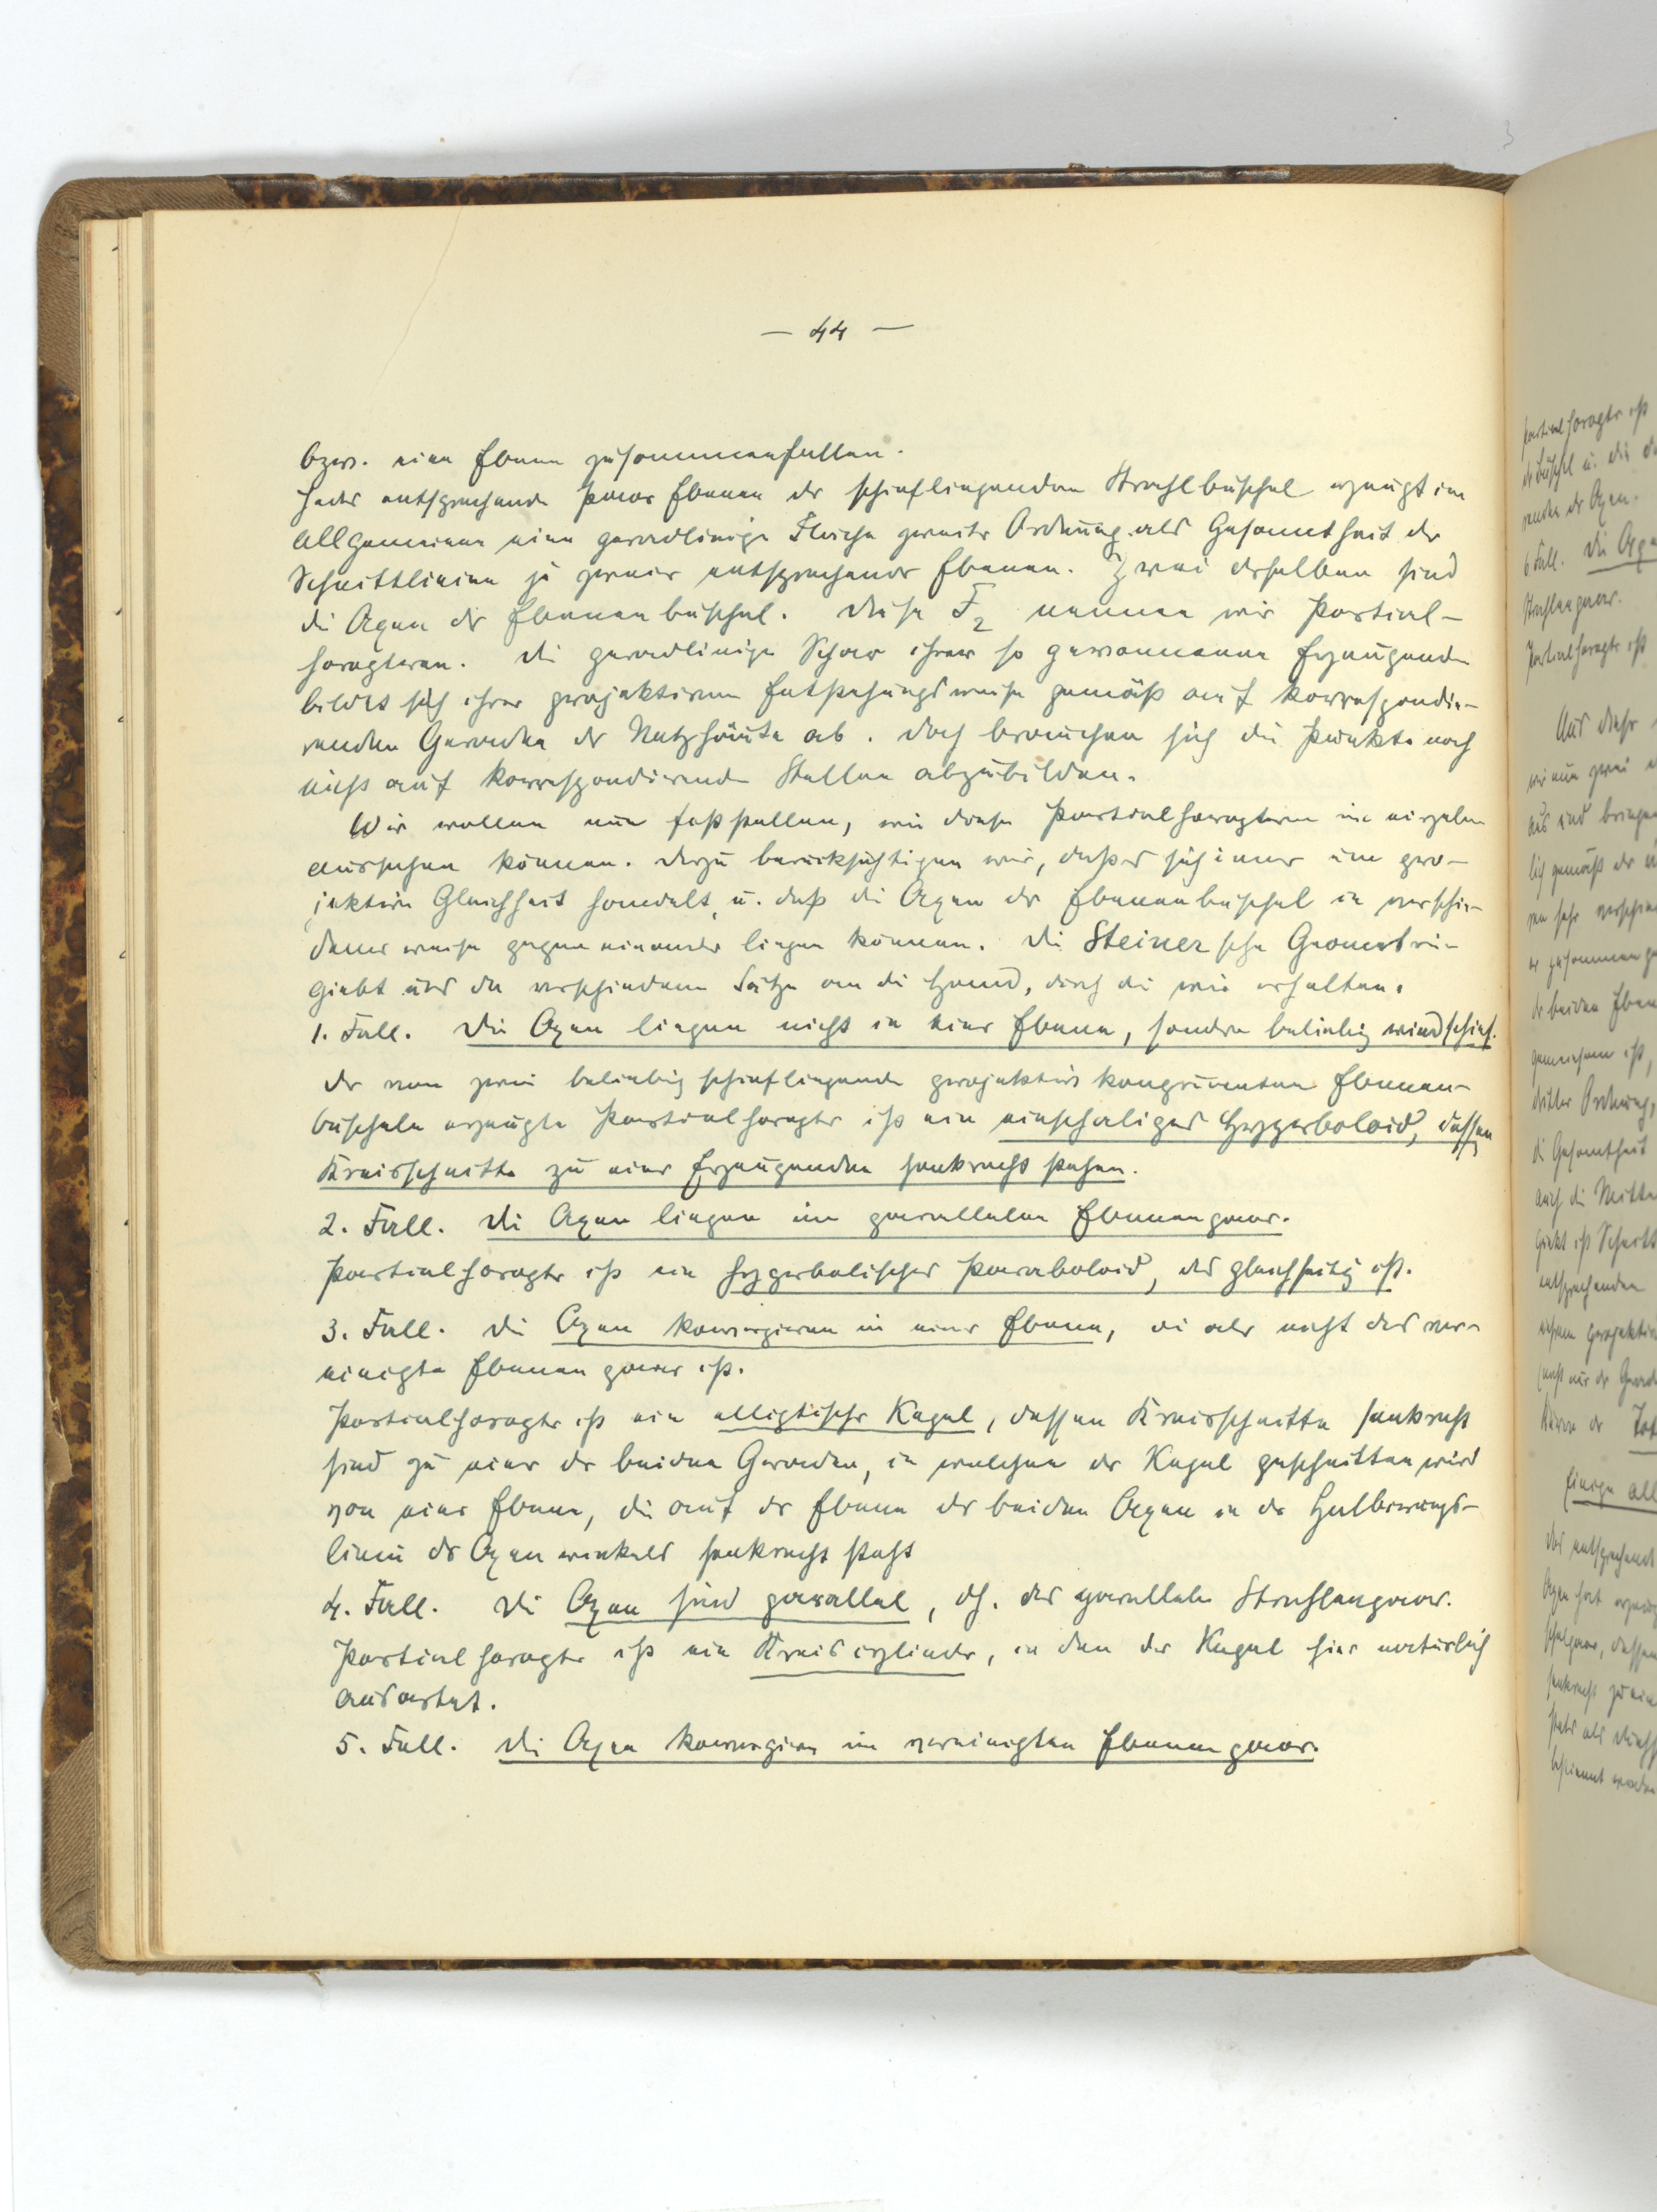 — 44 —
bzw. eine Ebene zusammenfallen.
Jedes entsprechende Paar Ebenen der schiefliegenden Strahlbüschel erzeugt im
allgemeinen eine geradlinige Fläche zweiter Ordnung als Gesamtheit der
Schnittlinien je zweier entsprechender Ebenen. Zwei derselben sind
die Axen der Ebenenbüschel. Diese F2 nennen wir Partial-
horopteren. Die geradlinige Schar ihrer so gewonnenen Erzeugenden
bildet sich ihrer projektiven Entstehungsweise gemäß auf korrespondie-
renden Geraden der Netzhäute ab. Doch brauchen sich die Punkte noch
nicht auf korrespondierende Stellen abzubilden.
Wir wollen nun feststellen, wie diese Partialhoropteren im einzelnen
aussehen können. Dazu berücksichtigen wir, daß es sich immer um pro-
jektive Gleichheit handelt, u. daß die Axen der Ebenenbüschel in verschie-
dener weise gegen einander liegen können. Die Steinersche Geometrie
giebt uns die verschiedenen Sätze an die Hand, durch die wir erhalten:
1. Fall. Die Axen liegen nicht in einer Ebene, sondern beliebig windschief.
Der von zwei beliebig schiefliegenden projektivis kongruenten Ebenen-
büscheln erzeugte Partialhoropter ist ein einschaliges Hyperboloid, dessen
Kreisschnitte zu einer Erzeugenden senkrecht stehen.
2. Fall. Die Axen liegen im parallelen Ebenenpaar.
Partialhoropter ist ein hyperbolisches Paraboloid, das gleichseitig ist.
3. Fall. Die Axen konvergieren in einer Ebene, die aber nicht das ver-
einigte Ebenenpaar ist.
Partialhoropter ist ein elliptischer Kegel, dessen Kreisschnitte senkrecht
sind zu einer der beiden Geraden, in welchen der Kegel geschnitten wird
von einer Ebene, die auf der Ebene der beiden Axen in der Halbierungs-
linie des Axenwinkels senkrecht steht
4. Fall. Die Axen sind parallel, dh. das parallele Strahlenpaar.
Partialhoropter ist ein Kreiscylinder, in den der Kegel hier natürlich
ausartet.
5. Fall. Die Axen konvergieren im vereinigten Ebenenpaar.